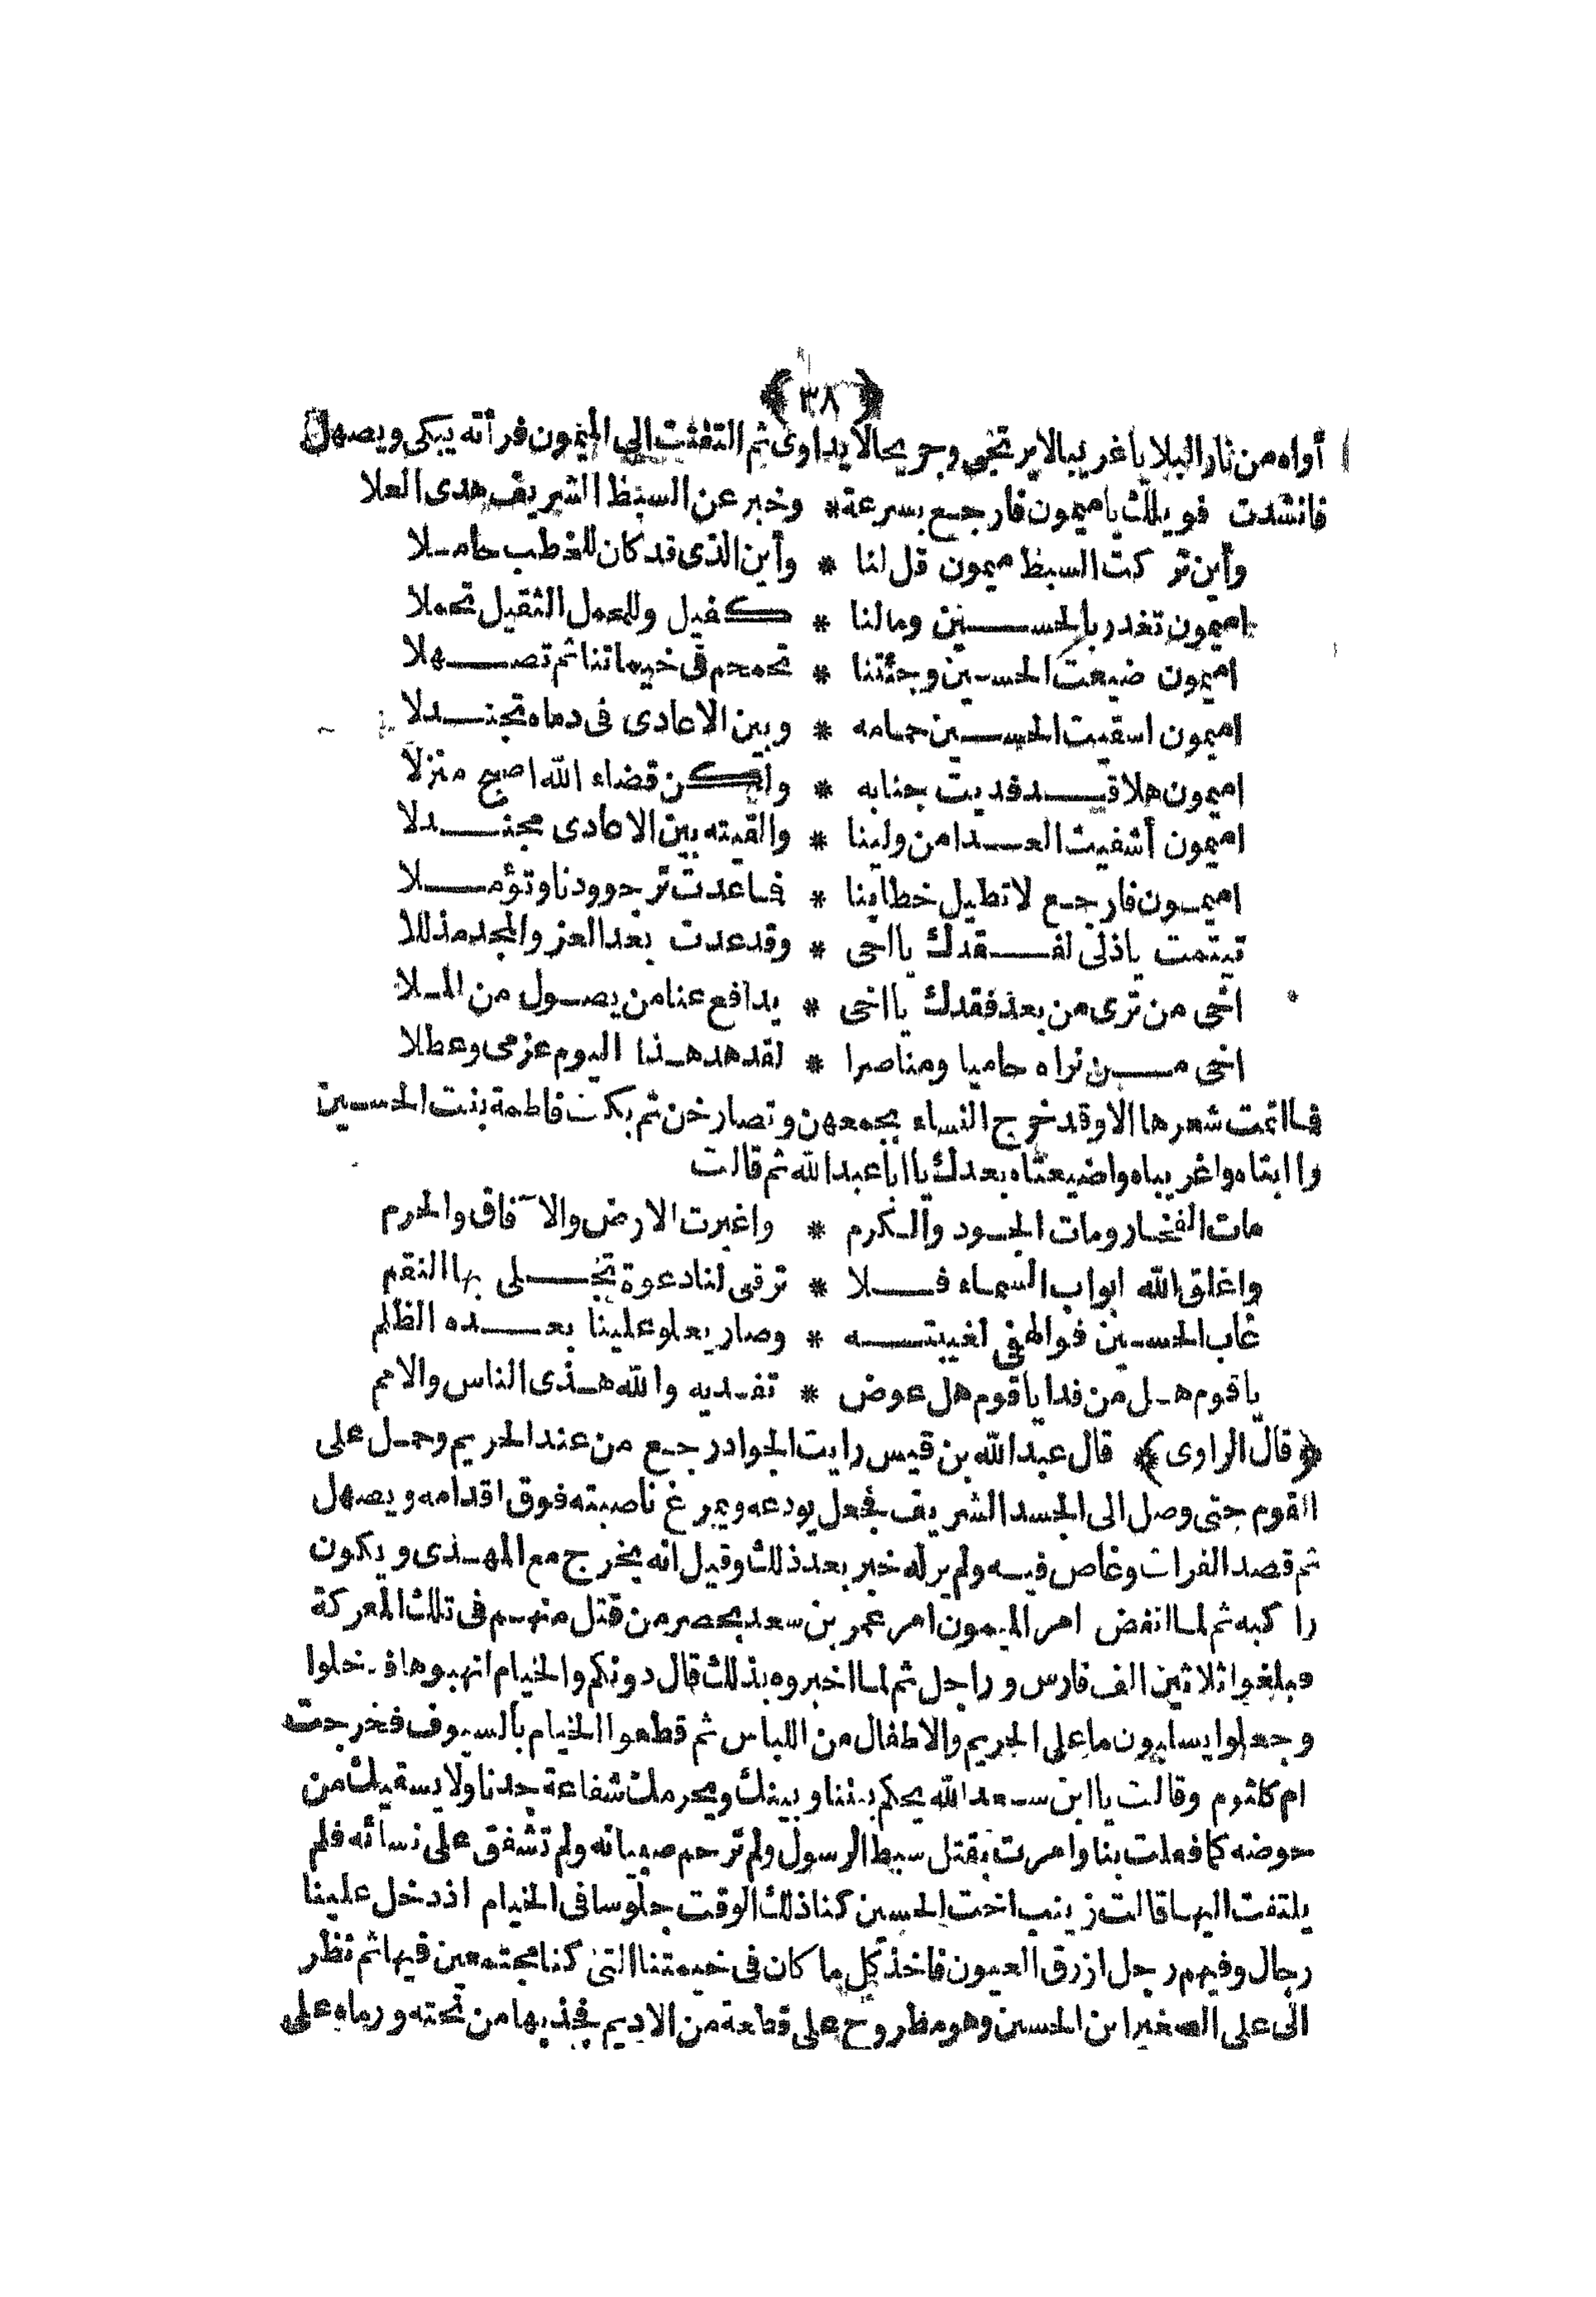 ﴿ ٣٨ ﴾
أواه من نار البلا يا غريبا لا يرتجى وجريحا لا يداوى ثم التفتت الى الميمون فرأته يبكى ويصهل
فانشدت فويلك يا ميمون فارجع بسرعة * وخبر عن السبط الشريف هدى العلا
وأين تركت السبط ميمون قل لنا * وأين الذى قد كان للخطب حاملا
اميمون تغدر بالحسين ومالنا * كفيل وللحمل الثقيل تحملا
اميمون ضيعت الحسين وجئتنا * تحمحم فى خيماتنا ثم تصهلا
اميمون اسقيت الحسين حمامه * وبين الاعادى فى دماه تجندلا
اميمون هلا قد فديت جنابه * ولكن قضاء الله اصبح منزلا
اميمون أشفيت العدا من ولينا * والقيته بين الاعادى مجندلا
اميمون فارجع لا تطيل خطابنا * فاعدت ترجو ودنا وتؤملا
تيتمت ياذلى لفقدك يا اخى * وقد عدت بعد العز والمجد مذللا
اخى من ترى من بعد فقدك يا اخى * يدافع عنا من يصول من الملا
اخى من نراه حاميا ومناصرا * لقد هد هذا اليوم عزمى وعطلا
فما اتمت شعرها الا وقد خرج النساء بجمعهن وتصارخن ثم بكت فاطمة بنت الحسين
وا ابتاه واغريباه واضيعتاه بعدك يا ابا عبد الله ثم قالت
مات الفخار ومات الجود والكرم * واغبرت الارض والآفاق والحرم
واغلق الله ابواب السماء فلا * ترقى لنا دعوة تجلى بها النقم
غاب الحسين فوا لهفى لغيبته * وصار يعلو علينا بعده الظلم
يا قوم هل من فدا يا قوم هل عوض * تفديه والله هذى الناس والامم
﴿ قال الراوى ﴾ قال عبد الله بن قيس رايت الجواد رجع من عند الحريم وحمل على
القوم حتى وصل الى الجسد الشريف فجعل يودعه ويمرغ ناصيته فوق اقدامه ويصهل
ثم قصد الفرات وغاص فيه ولم ير له خبر بعد ذلك وقيل انه يخرج مع المهدى ويكون
راكبه ثم لما انفض امر الميمون امر عمر بن سعد بحصر من قتل منهم فى تلك المعركة
فبلغوا ثلاثين الف فارس وراجل ثم لما اخبروه بذلك قال دونكم والخيام انهبوها فدخلوا
وجعلوا يسلبون ما على الحريم والاطفال من اللباس ثم قطعوا الخيام بالسيوف فخرجت
ام كلثوم وقالت يا ابن سعد الله يحكم بيننا وبينك ويحرمك شفاعة جدنا ولا يسقيك من
حوضه كما فعلت بنا وامرت بقتل سبط الرسول ولم ترحم صبيانه ولم تشفق على نسائه فلم
يلتفت اليها قالت زينب اخت الحسين كنا ذلك الوقت جلوسا فى الخيام اذ دخل علينا
رجال وفيهم رجل ازرق العيون فاخذ كل ما كان فى خيمتنا التى كنا مجتمعين فيها ثم نظر
الى على الصغير ابن الحسين وهو مطروح على قطعة من الاديم فجذبها من تحته ورماه على